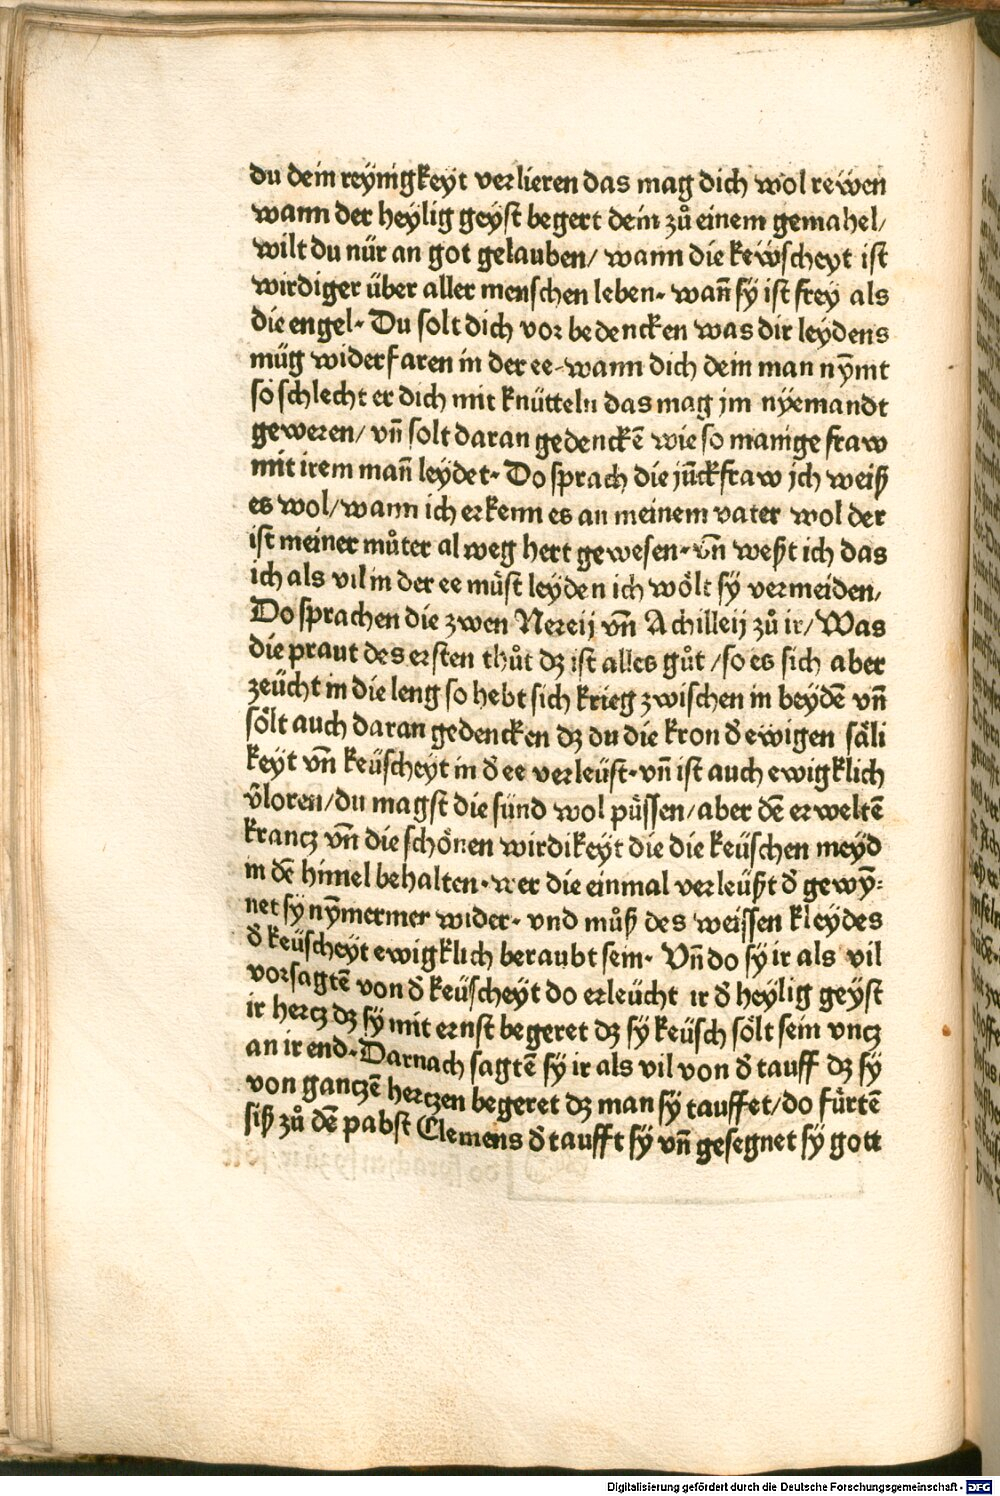 du dein reynigkeyt verlieren das mag dich wol rewen
wann der heylig geyst begert dein zů einem gemahel/
wilt du nür an got gelauben/ wann die kewscheyt ist
wirdiger über aller menschen leben. wañ sy ist frey als
die engel. Du solt dich vor bedencken was dir leydens
müg widerfaren in der ee. wann dich dein man nȳmt
so schlecht er dich mit knütteln das mag jm nyemandt
geweren/ vñ solt daran gedenckē wie so manige fraw
mit irem mañ leydet. Do sprach die jūckfraw jch weiß
es wol/ wann ich erkenn es an meinem vater wol der
ist meiner můter alweg hert gewesen. vñ weßt ich das
ich als vil in der ee müst leyden ich wölt sy vermeiden/
Do sprachen die zwen Nereij vñ Achilleij zů ir/ Was
die praut des ersten thůt dz ist alles gůt /so es sich aber
zeücht in die leng so hebt sich krieg zwischen in beydē vñ
sölt auch daran gedencken dz du die kron d̄ ewigen säli
keyt vñ keüscheyt in d̄ ee verleüst. vñ ist auch ewigklich
v̄loren/ du magst die sünd wol püssen/ aber dē erweltē
krancz vñ die schönen wirdikeyt die die keüschen meyd
in dē himel behalten. wer die einmal verleüßt d̄ gewȳ=
net sy nȳmermer wider. vnd můß des weissen kleydes
d̄ keüscheyt ewigklich beraubt sein. Vñ do sy ir als vil
vorsagtē von d̄ keüscheyt do erleücht ir d̄ heylig geyst
ir hercz dz sy mit ernst begeret dz sy keüsch sölt sein vncz
an ir end. Darnach sagtē sy ir als vil von d̄ tauff dz sy
von ganczē herczen begeret dz man sy tauffet/ do fürtē
siß zů dē pabst Clemens d̄ taufft sy vñ gesegnet sy gott
Digitalisierung gefördert durch die Deutsche Forschungsgemeinschaft - DFG